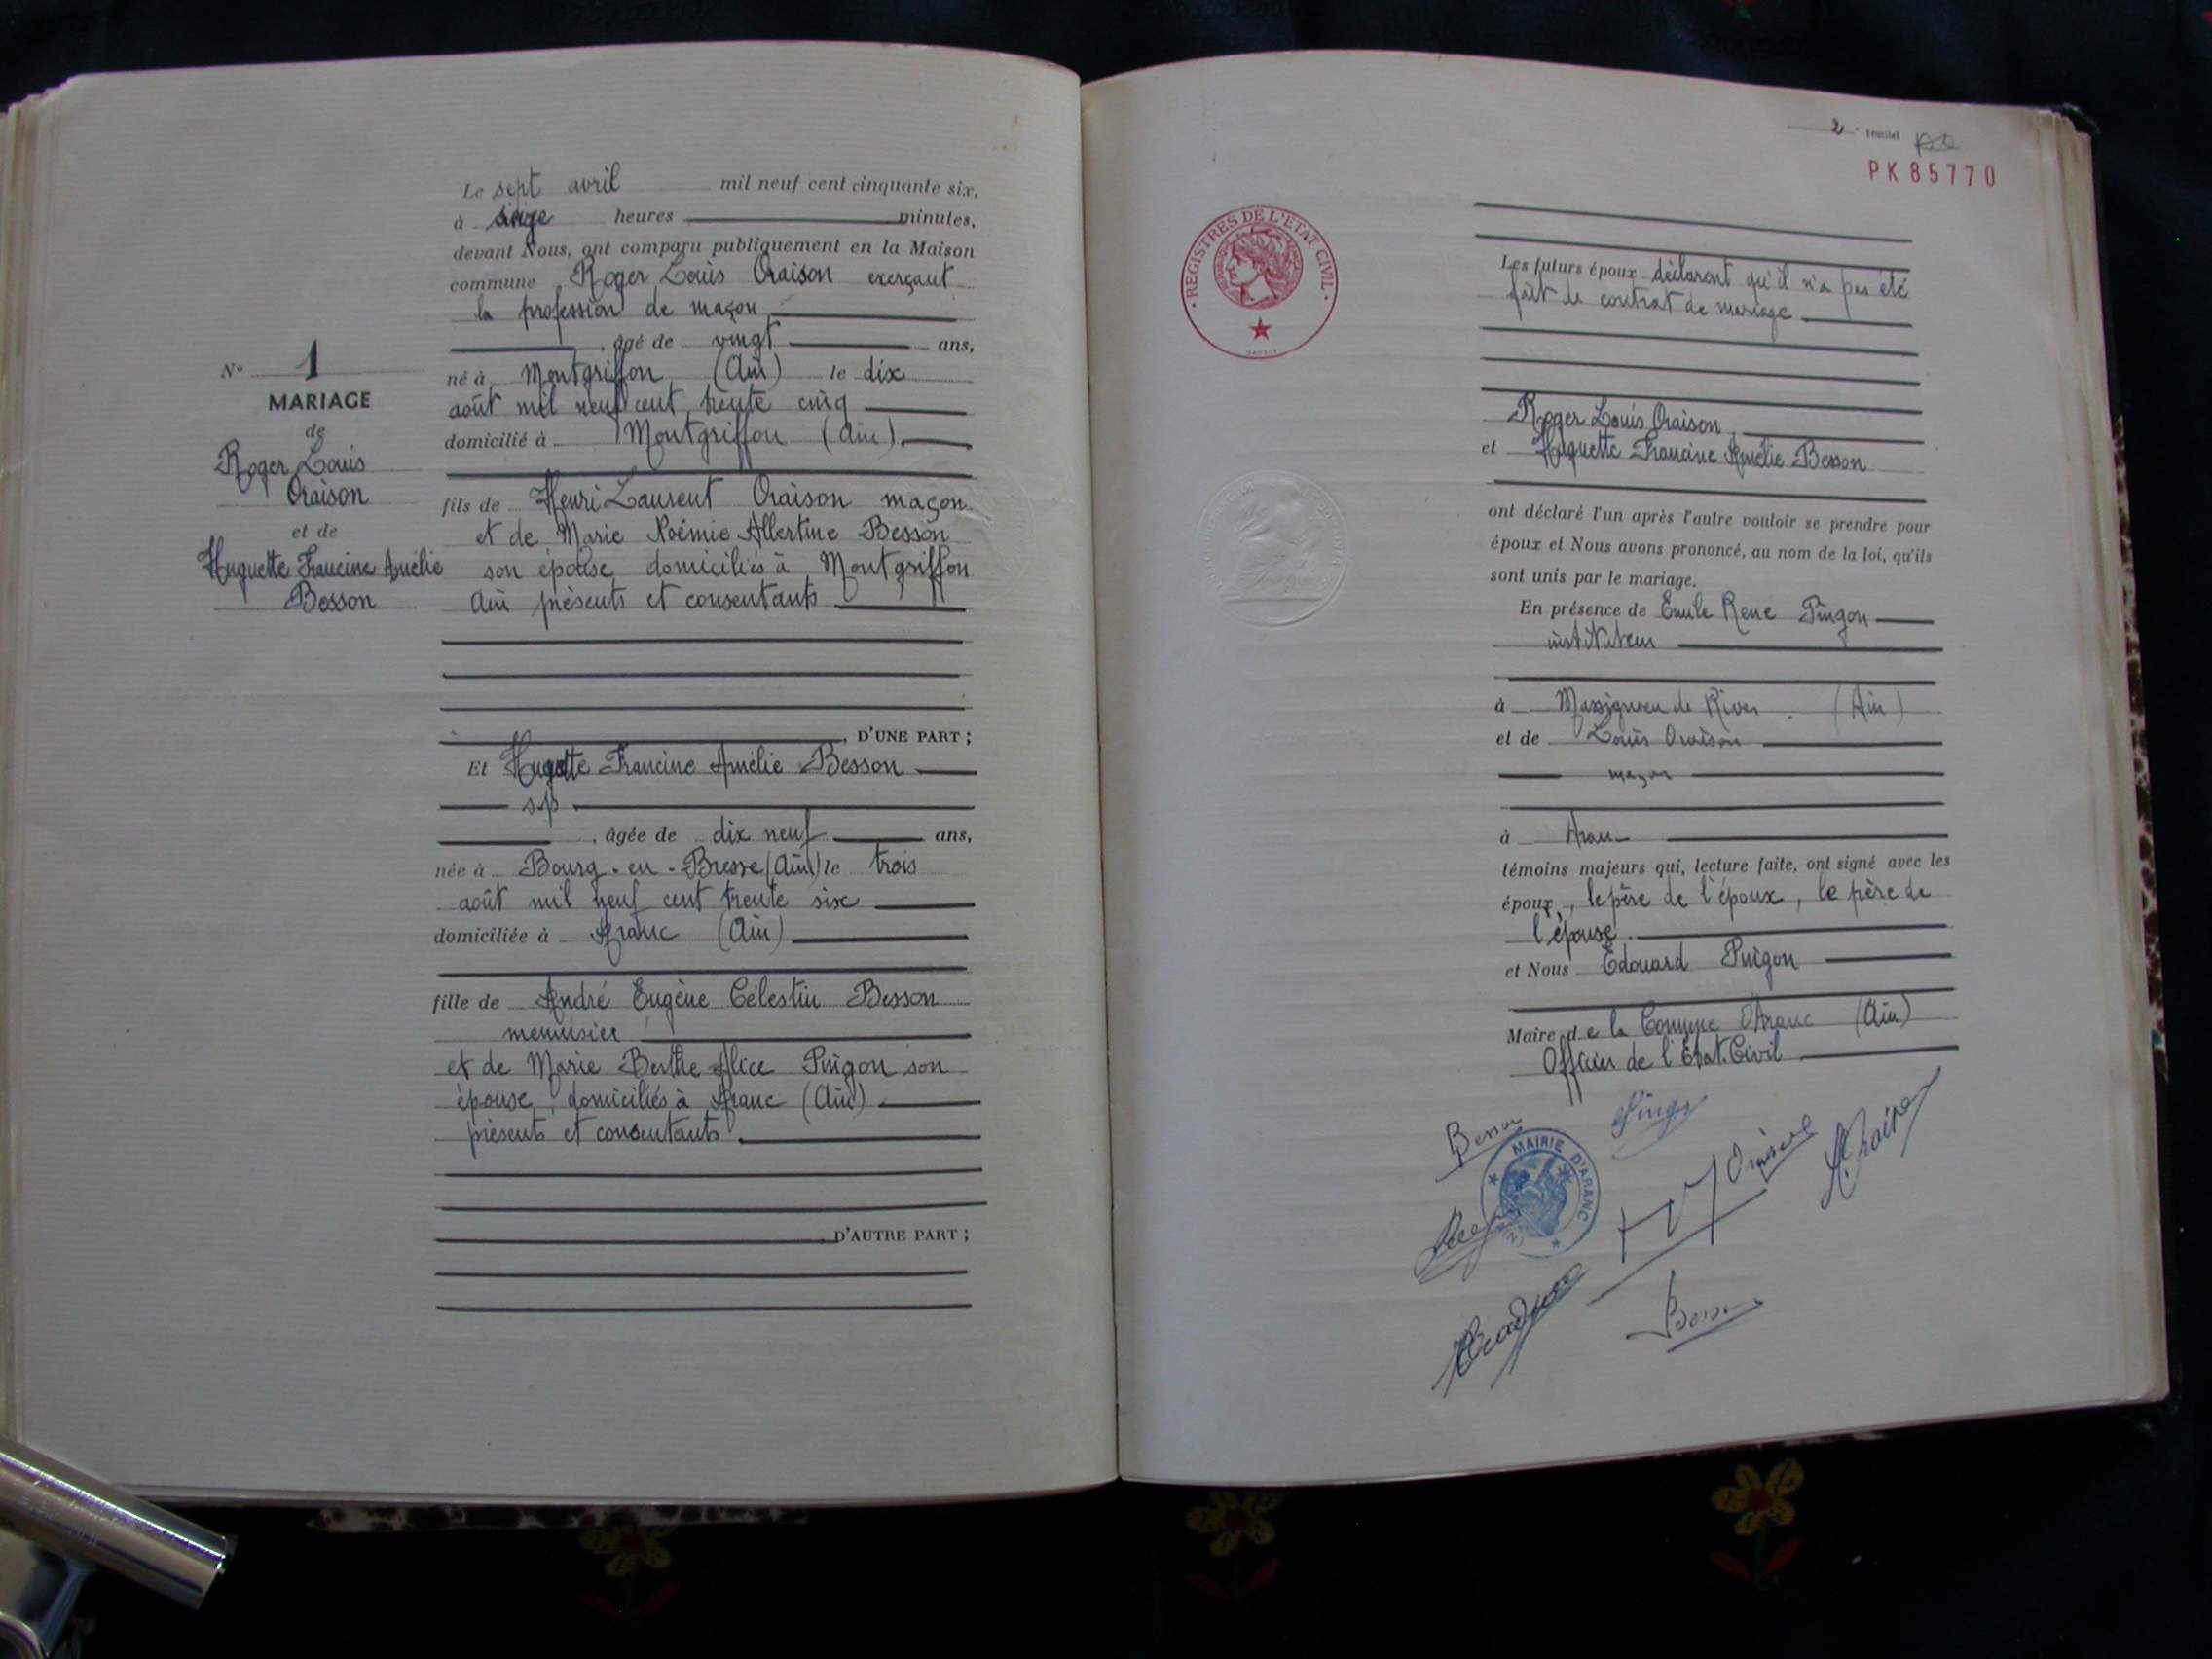 Le sept avril mil neuf cent cinquante six,
à seize heures minutes,
devant Nous, ont comparu publiquement en la Maison
commune Roger Louis Oraison exerçant
la profession de maçon
, âgé de vingt ans,
né à Montgriffon (Ain) le dix
août mil neuf cent trente cinq
domicilié à Montgriffon (Ain)
fils de Henri Laurent Oraison maçon
et de Marie Noémie Albertine Besson
son épouse domiciliés à Montgriffon
Ain présents et consentants
, D'UNE PART ;
Et Huguette Francine Amélie Besson
s.p.
, âgée de dix neuf ans,
née à Bourg-en-Bresse (Ain) le trois
août mil neuf cent trente six
domiciliée à Aranc (Ain)
fille de André Eugène Célestin Besson
menuisier
et de Marie Berthe Alice Pingon son
épouse, domiciliés à Aranc (Ain)
présents et consentants.
, D'AUTRE PART ;
N° 1
MARIAGE
de
Roger Louis
Oraison
et de
Huguette Francine Amélie
Besson
2e feuillet
PK85770
REGISTRES DE L'ETAT CIVIL
Les futurs époux déclarent qu'il n'a pas été
fait de contrat de mariage
Roger Louis Oraison
et Huguette Francine Amélie Besson
ont déclaré l'un après l'autre vouloir se prendre pour
époux et Nous avons prononcé, au nom de la loi, qu'ils
sont unis par le mariage.
En présence de Emile René Pingon
instituteur
à Massignieu de Rives (Ain)
et de Louis Oraison
maçon
à Aranc
témoins majeurs qui, lecture faite, ont signé avec les
époux, le père de l'époux, le père de
l'épouse.
et Nous Edouard Pingon
Maire de la Commune d'Aranc (Ain)
Officier de l'Etat-Civil
Besson
Pingon
Oraison
Oraison
MAIRIE D'ARANC
(AIN)
Besson